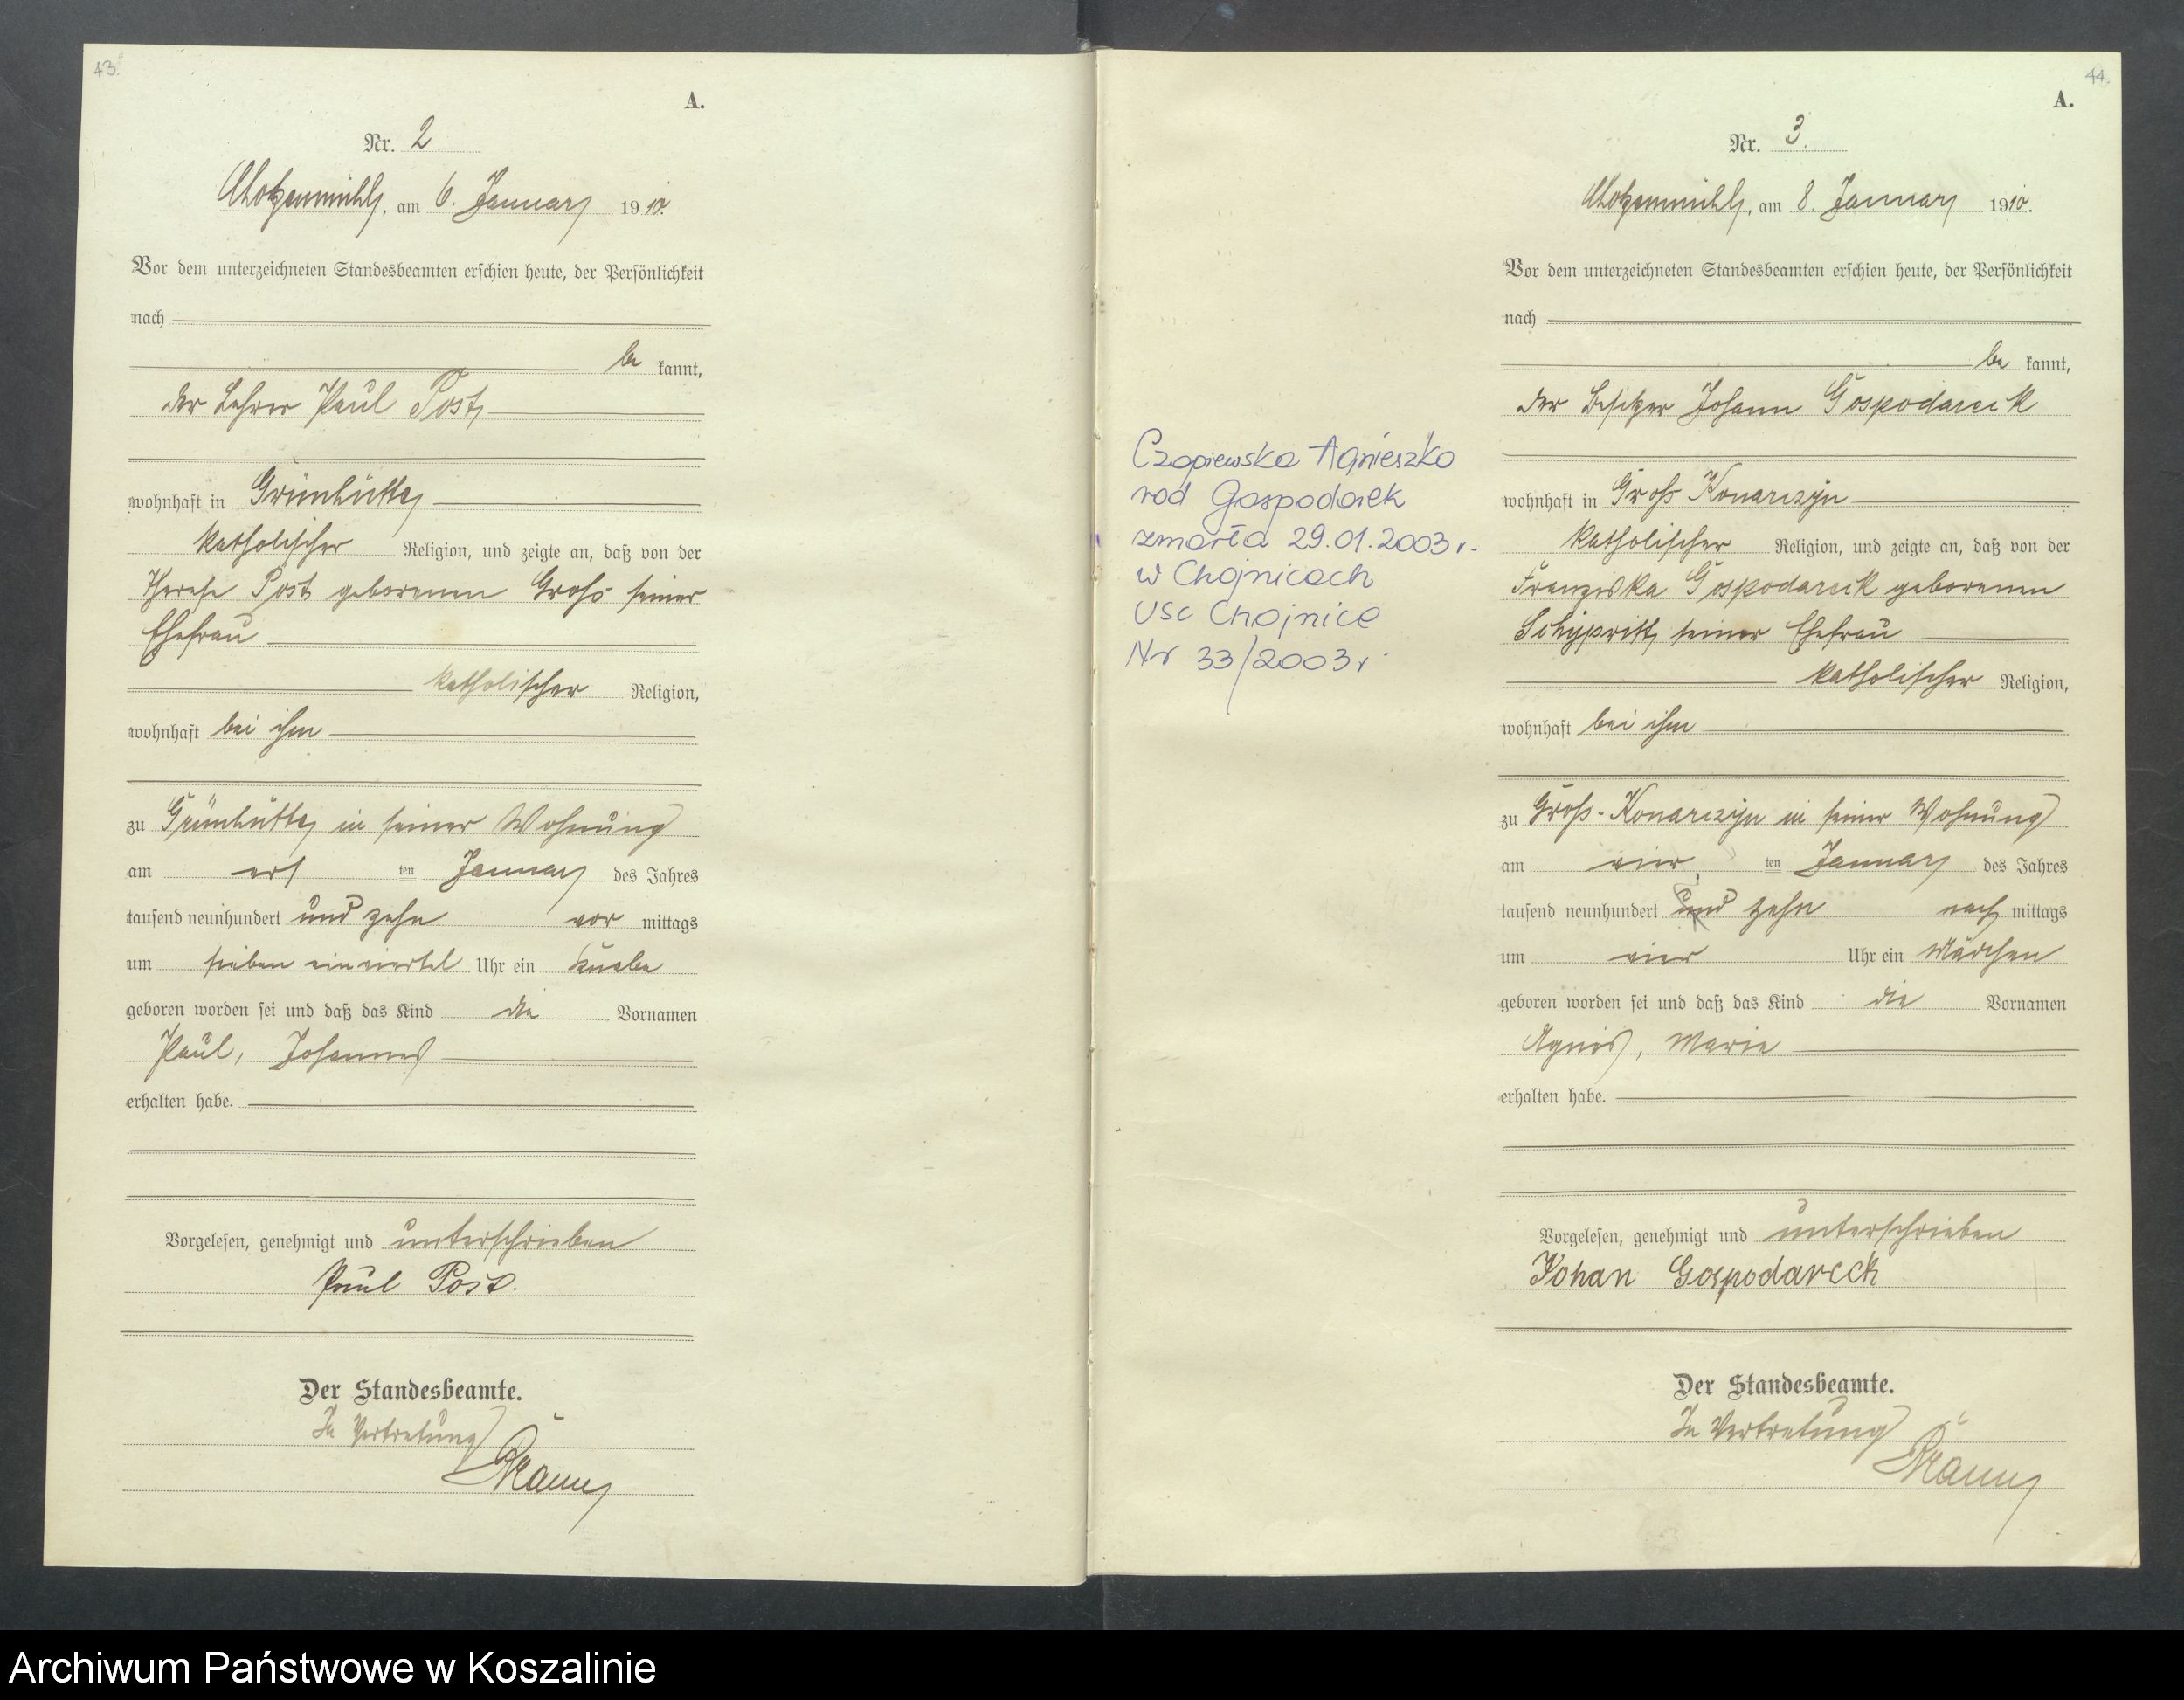 43.
A.
Nr. 2.
Klotzenmühle, am 6. Januar 1910.
Vor dem unterzeichneten Standesbeamten erschien heute, der Persönlichkeit
nach
be kannt,
der Lehrer Paul Post
wohnhaft in Grünhütte
katholischer Religion, und zeigte an, daß von der
Therese Post geborenen Groß seiner
Ehefrau
katholischer Religion,
wohnhaft bei ihm
zu Grünhütte in seiner Wohnung
am ers ten Januar des Jahres
tausend neunhundert und zehn vor mittags
um sieben einviertel Uhr ein Knabe
geboren worden sei und daß das Kind die Vornamen
Paul, Johannes
erhalten habe.
Vorgelesen, genehmigt und unterschrieben
Paul Post.
Der Standesbeamte.
In Vertretung
44.
A.
Nr. 3.
Klotzenmühle, am 8. Januar 1910.
Vor dem unterzeichneten Standesbeamten erschien heute, der Persönlichkeit
nach
be kannt,
der Besitzer Johann Gospodareck
wohnhaft in Groß Konarczyn
katholischer Religion, und zeigte an, daß von der
Franziska Gospodareck geborenen
seiner Ehefrau
katholischer Religion,
wohnhaft bei ihm
zu Groß-Konarczyn in seiner Wohnung
am vier ten Januar des Jahres
tausend neunhundert und zehn nach mittags
um vier Uhr ein Mädchen
geboren worden sei und daß das Kind die Vornamen
Agnes, Marie
erhalten habe.
Vorgelesen, genehmigt und unterschrieben
Johan Gospodareck
Der Standesbeamte.
In Vertretung
Czapiewska Agnieszka
rod Gospodarek
zmarła 29.01.2003 r.
w Chojnicach
USC Chojnice
Nr 33/2003 r
Archiwum Państwowe w Koszalinie